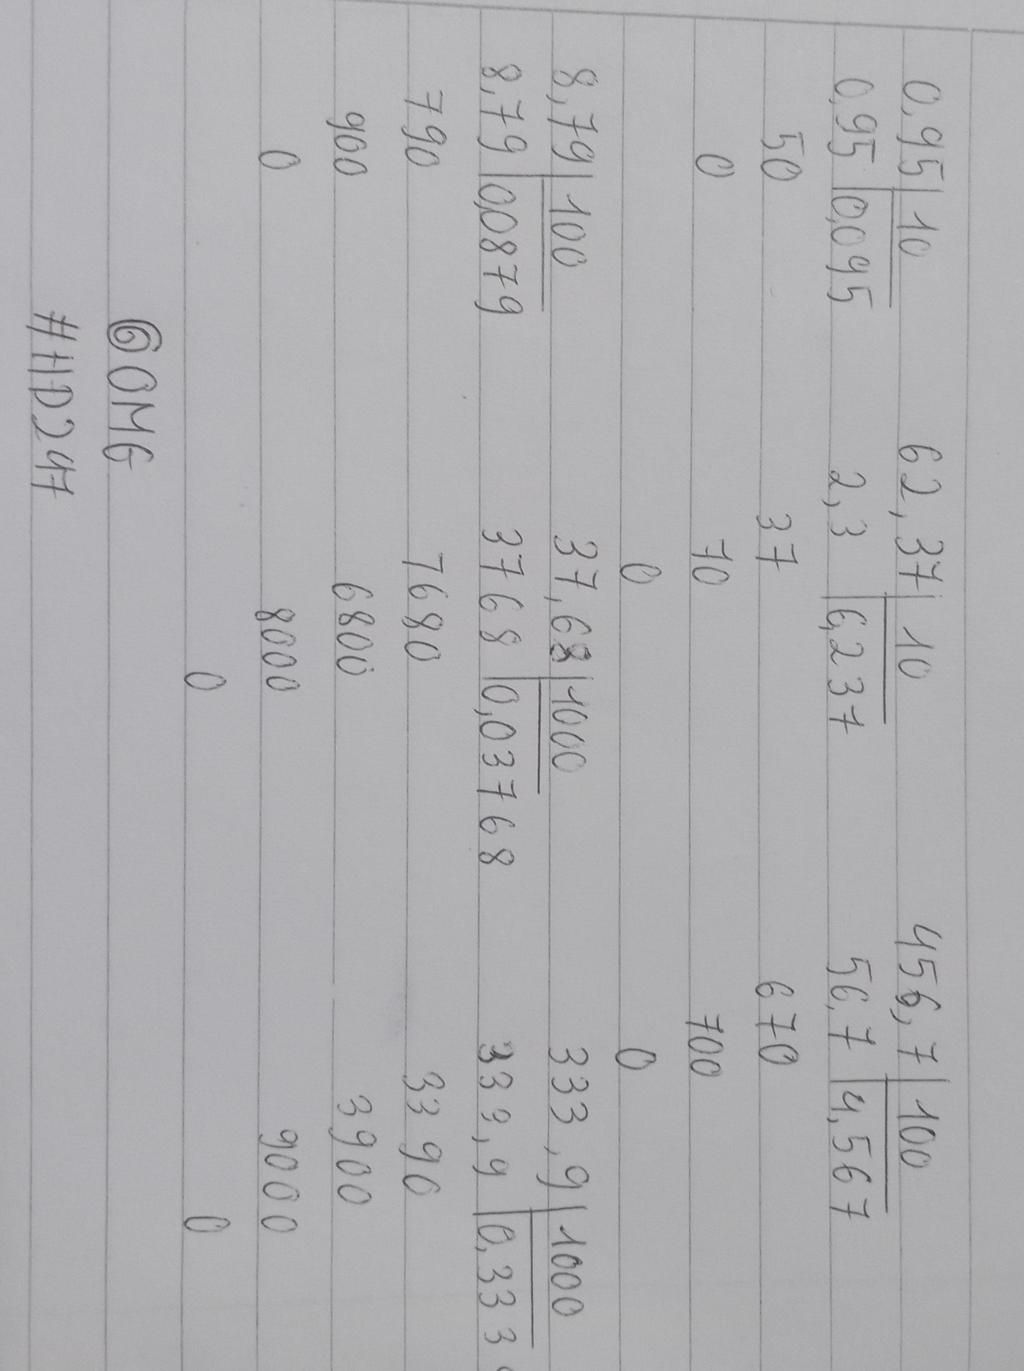 0,95 | 10 62,37 | 10 456,7 | 100
0,95 | 0,095 2,3 | 6,237 56,7 | 4,567
50 37 670
0 70 700
0 0
8,79 | 100 37,68 | 1000 333,9 | 1000
8,79 | 0,0879 3768 | 0,03768 333,9 | 0,333
790 7680 3390
900 6800 3900
0 8000 9000
0 0
@OMG
#HD247